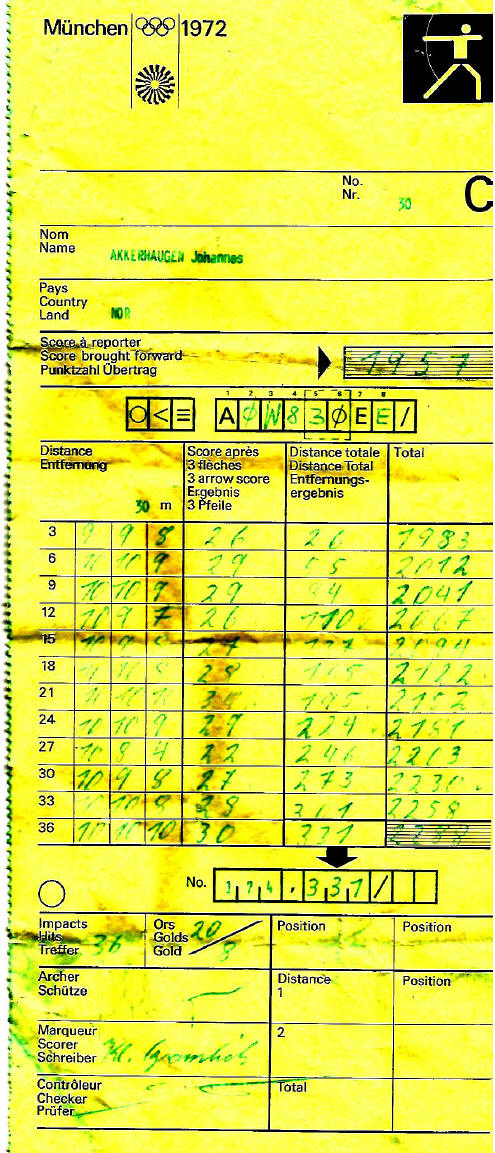 München 1972
No.
Nr. 30 C
Nom
Name AKKERHAUGEN Johannes
Pays
Country
Land NOR
Score à reporter
Score brought forward
Punktzahl Übertrag 1957
1 2 3 4 5 6 7 8
O < ≡ A Ø W 8 3 Ø E E /
Distance Score après Distance totale Total
Entfernung 3 flèches Distance Total
3 arrow score Entfernungs-
Ergebnis ergebnis
30 m 3 Pfeile
3 9 9 8 26 26 1983
6 10 10 9 29 55 2012
9 10 10 9 29 84 2041
12 10 9 7 26 110. 2067
15 10 9 8 27 137 2094
18 10 10 8 28 165 2122
21 10 10 10 30 195. 2152
24 10 10 9 29 224. 2181
27 10 8 4 22 246 2203
30 10 9 8 27 273 2230.
33 10 10 8 28 301 2258
36 10 10 10 30 331 2288
No. 174.331/
Impacts Ors Position Position
Hits Golds 20
Treffer 36 Gold / 8
Archer Distance Position
Schütze 1
Marqueur 2
Scorer
Schreiber
Contrôleur Total
Checker
Prüfer